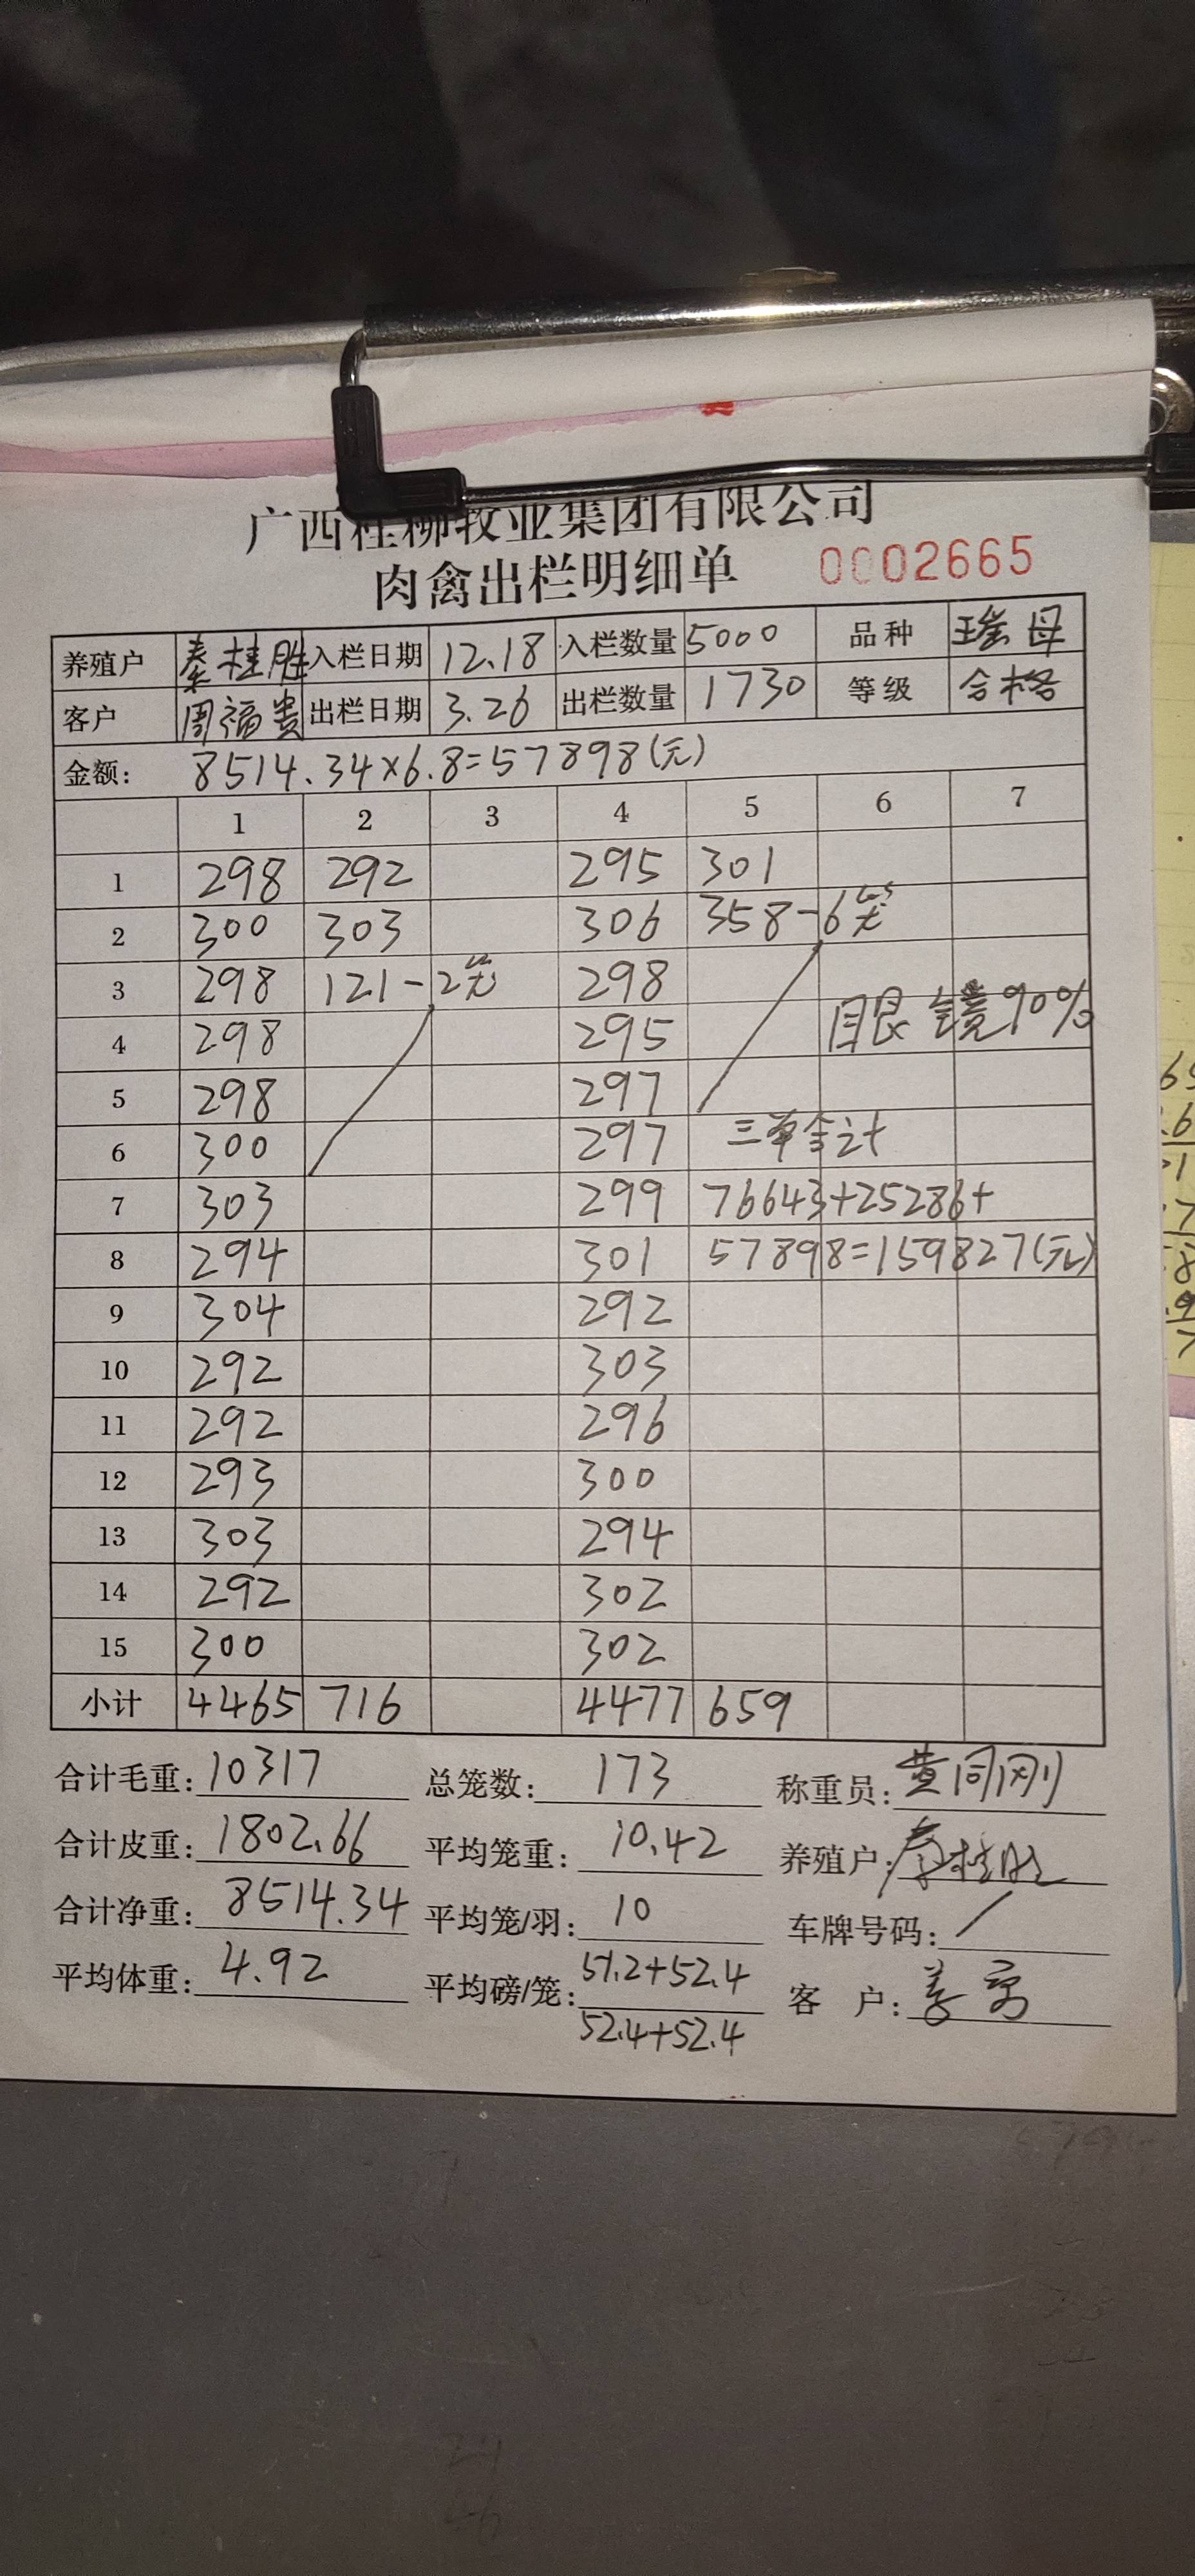 广西桂柳牧业集团有限公司
肉禽出栏明细单 0002665
养殖户 秦桂胜 入栏日期 12.18 入栏数量 5000 品种 瑶母
客户 周福贵 出栏日期 3.26 出栏数量 1730 等级 合格
金额: 8514.34×6.8=57898(元)
1 2 3 4 5 6 7
1 298 292 295 301
2 300 303 306 358-6笼
3 298 121-2笼 298
4 298 295 眼镜90%
5 298 297
6 300 297 三单合计
7 303 299 76643+25286+
8 294 301 57898=159827(元)
9 304 292
10 292 303
11 292 296
12 293 300
13 303 294
14 292 302
15 300 302
小计 4465 716 4477 659
合计毛重: 10317 总笼数: 173 称重员: 黄同刚
合计皮重: 1802.66 平均笼重: 10.42 养殖户: 秦桂胜
合计净重: 8514.34 平均笼/羽: 10 车牌号码: /
平均体重: 4.92 平均磅/笼: 51.2+52.4 客 户:
52.4+52.4